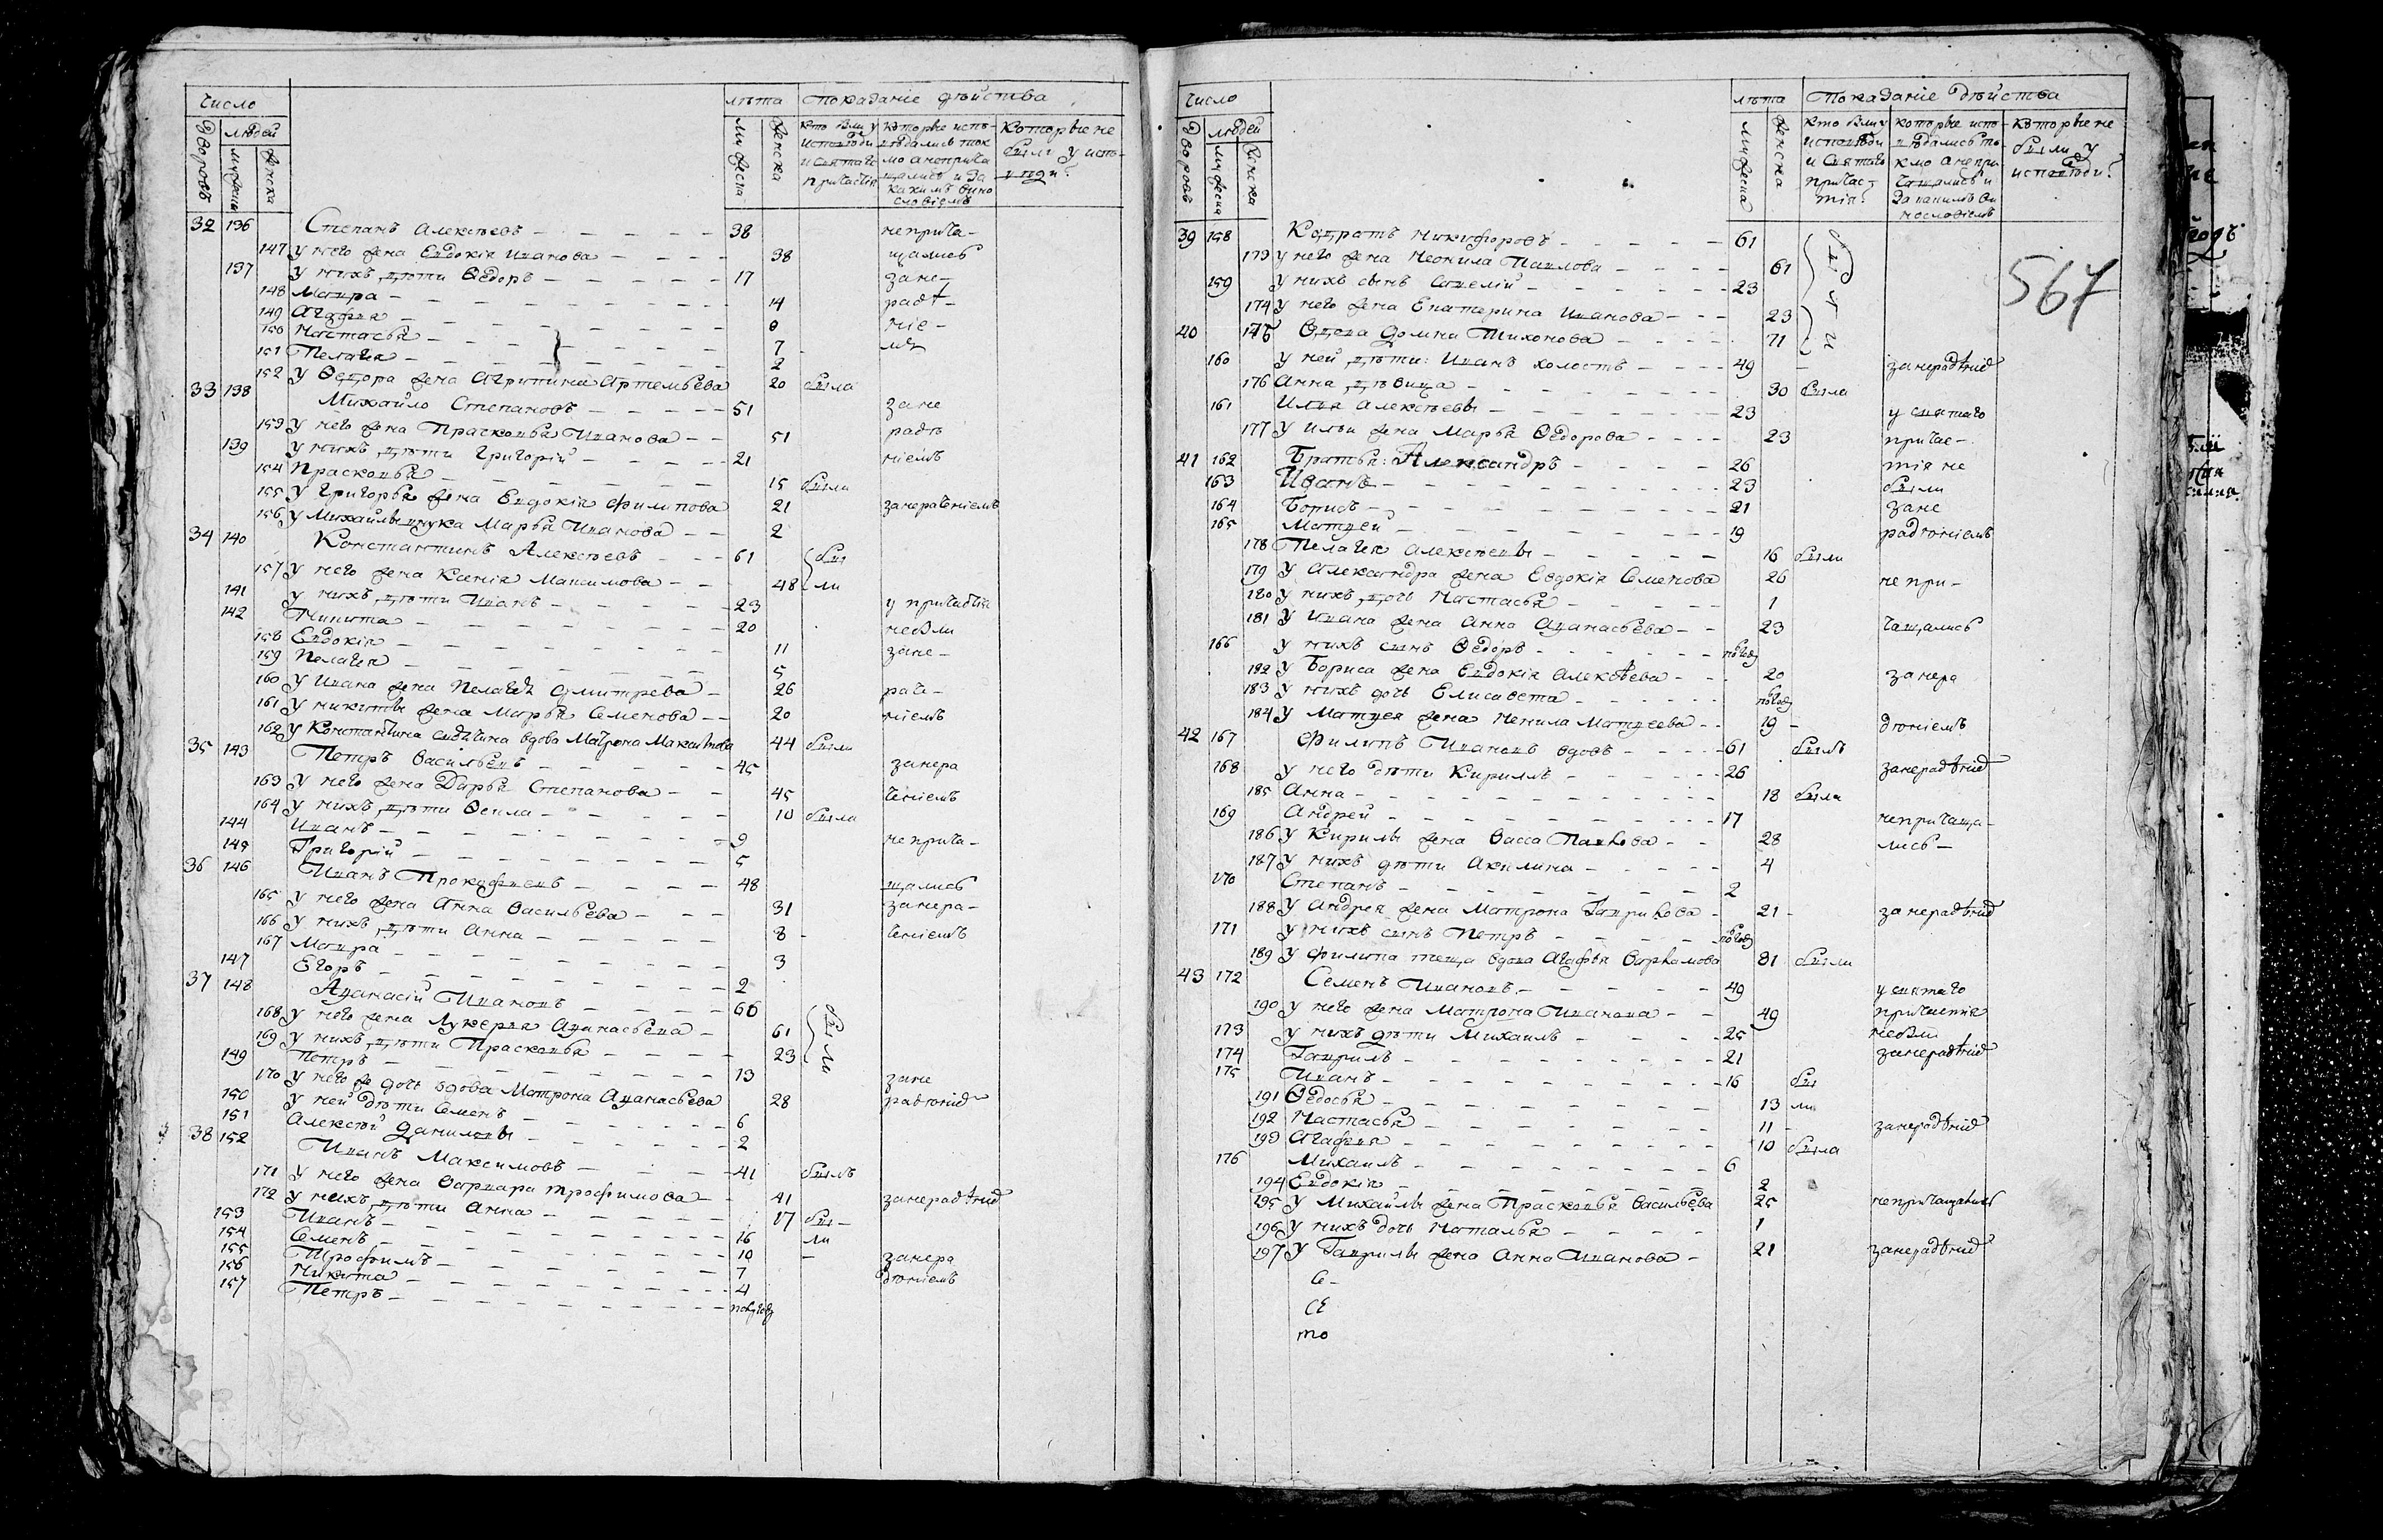 Число
лѣта Показаніе дѣйства
Дворовъ людей
мужеска женска
мужеска женска
кто были у исповѣди и святаго причастія
которые исповѣдались ток мо а неприча щались и за какимъ вино словіемъ
Которые не были у испо вѣди?
32 136 Степанъ Алексѣевъ 38 неприча-
147 У него жена Евдокія Иванова 38 щались
137 У нихъ дѣти Ѳедоръ 17 зане-
148 Мавра 14 радѣ-
149 Агафья 9 ніе-
150 Настасья 7 мъ
151 Пелагея 2
152 У Ѳедора жена Агрипина Артемьева 20 была
33 138 Михайло Степановъ 51 зане
153 У него жена Прасковья Иванова 51 радѣ
139 У нихъ дѣти Григорій 21 ніемъ
154 Прасковья 15 были
155 У Григорья жена Евдокія Филипова 21 занераченіемъ
156 У Михайлы внука Марья Иванова 2
34 140 Константинъ Алексѣевъ 61 бы
157 У него жена Ксенія Максимова 48 ли
141 У нихъ дѣти Иванъ 23 у причастія
142 Никита 20 небыли
158 Евдокія 11 зане-
159 Пелагея 5
160 У Ивана жена Пелагея Дмитрева 26 раче-
161 У никиты жена Марья Семенова 20 ніемъ
162 У Константина вдова Матрона Максимова 44 были
35 143 Петръ Васильевъ 45 занера
163 У него жена Дарья Степанова 45 ченіемъ
164 У нихъ дѣти Ѳекла 10 была
144 Иванъ 9 неприча-
145 Григорій 5
36 146 Иванъ Прокофьевъ 48 щались
165 У него жена Анна Васильева 31 занера-
166 У нихъ дѣти Анна 8 ченіемъ
167 Мавра 3
147 Егоръ 2
37 148 Аѳанасій Ивановъ 66
168 У него жена Лукерья Аѳанасьева 61 бы
169 У нихъ дѣти Прасковья 23 ли
149 Петръ 13
170 У него же дочь вдова Матрона Аѳанасьева 28 зане
150 У ней дѣти Семенъ 6 радѣніе
151 Алексѣй Даниловы 2
38 152 Иванъ Максимовъ 41 былъ
171 У него жена Варвара Трофимова 41 занерадѣніе
172 У нихъ дѣти Анна 17 бы-
153 Иванъ 16 ли
154 Семенъ 10
155 Трофимъ 7 занера
156 Никита 4 дѣніемъ
157 Петръ полгод
Число
лѣта Показаніе дѣйства
Дворовъ людей
мужеска женска
мужеска женска
кто были у исповѣди и святаго причас тія?
которые испо вѣдались то кмо а непри чащались и за какимъ ви нословіемъ
которые не были у исповѣди?
567
39 158 Кодратъ Никифоровъ 61
173 У него жена Неонила Павлова 61 бы
159 У нихъ сынъ Савелій 23
174 У него жена Екатерина Иванова 23 л
40 175 Вдова Домна Тихонова 71 и
160 У ней дѣти: Иванъ холостъ 49 занерадѣніе
176 Анна дѣвица 30 была
161 Илья Алексѣевы 23 у святаго
177 У Ильи жена Марья Ѳедорова 23 причас-
41 162 Братья: Александръ 26 тія не
163 Иванъ 23 были
164 Борисъ 21 зане
165 Матвей 19 радѣніемъ
178 Пелагея Алексѣевы 16 были
179 У Александра жена Евдокія Семенова 26 непри-
180 У нихъ дочь Настасья 1
181 У Ивана жена Анна Аѳанасьева 23 чащались
166 У нихъ сынъ Ѳедоръ полгод
182 У Бориса жена Евдокія Алексѣева 20 занера
183 У нихъ дочь Елисавета полгод
184 У Матвея жена Ненила Матвеева 19 дѣніемъ
42 167 Филипъ Ивановъ вдовъ 61 былъ
168 У него дѣти Кирилъ 26 занерадѣніе
185 Анна 18 была
169 Андрей 17 непричаща-
186 У Кирилы жена Васса Павлова 28 лись-
187 У нихъ дѣти Акилина 4
170 Степанъ 2
188 У Андрея жена Матрона Гаврилова 21 занерадѣніе
171 У нихъ сынъ Петръ полгод
189 У Филипа теща вдова Агафья Варламова 81 были
43 172 Семенъ Ивановъ 49 у святаго
190 У него жена Матрона Иванова 49 причастія
173 У нихъ дѣти Михаилъ 25 небыли
174 Гаврилъ 21 занерадѣніе
175 Иванъ 16 бы
191 Ѳедосья 13 ли
192 Настасья 11 занерадѣніе
193 Агафья 10 была
176 Михаилъ 6
194 Евдокія 2
195 У Михайлы жена Прасковья Васильева 25 непричащались
196 У нихъ дочь Наталья 1
197 У Гаврилы жена Анна Иванова 21 занерадѣніе
С-
СЕ
то